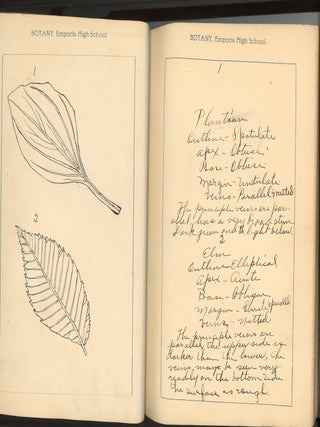 BOTANY, Emporia High School
1
2
BOTANY, Emporia High School
1
Plantain
Outline - Spatulate
Apex - Obtuse
Base - Obtuse
Margin - Undulate
Veins - Parallel netted
The principle veins are par-
allel, has a very broad stem
Dark green and light below.
2
Elm
Outline - Elliptical
Apex - Acute
Base - Oblique
Margin - Serrate
Veins - Netted
The principle veins are
parallel the upper side is
darker than the lower, the
veins, may be seen very
readily on the bottom side
the surface is rough.